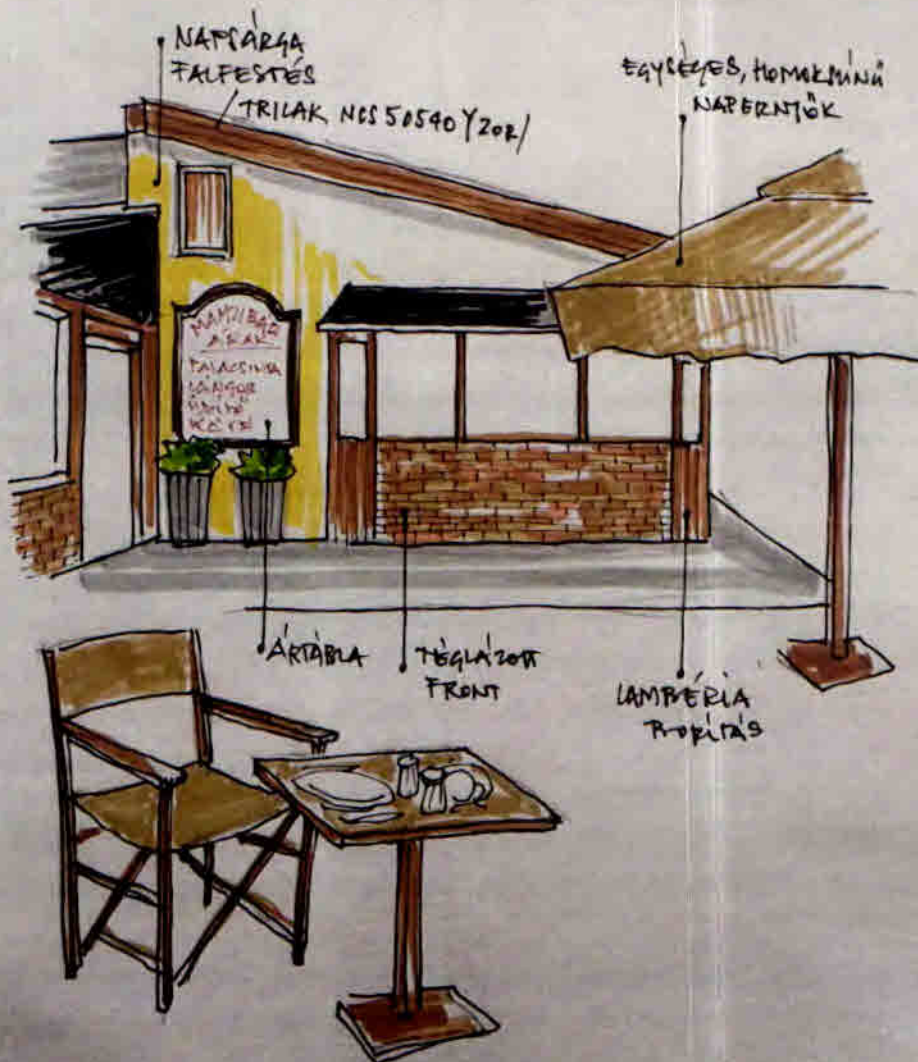 NAPSÁRGA
FALFESTÉS
/TRILAK NCS S0540 Y20R/
EGYSÉGES, HOMOKSZÍNŰ
NAPERNYŐK
MANDI BÁR
ÁRAK
PALACSINTA
LÁNGOS
ÜDÍTŐ
KÁVÉ
ÁRTÁBLA
TÉGLÁZOTT
FRONT
LAMBÉRIA
BORÍTÁS